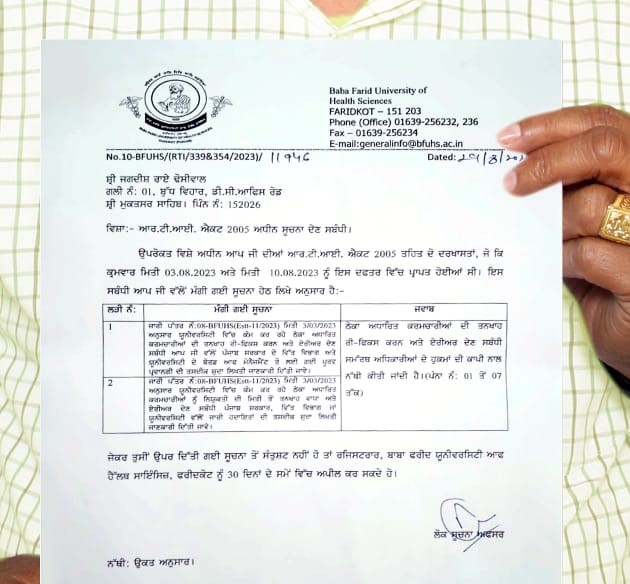 BABA FARID UNIVERSITY OF HEALTH SCIENCES
Baba Farid University of
Health Sciences
FARIDKOT – 151 203
Phone (Office) 01639-256232, 236
Fax – 01639-256234
E-mail:generalinfo@bfuhs.ac.in
No.10-BFUHS/(RTI/339&354/2023)/ 11946 Dated:
ਸ਼੍ਰੀ ਜਗਦੀਸ਼ ਰਾਏ ਢੋਸੀਵਾਲ
ਗਲੀ ਨੰ: 01, ਬੁੱਧ ਵਿਹਾਰ, ਡੀ.ਸੀ.ਆਫਿਸ ਰੋਡ
ਸ਼੍ਰੀ ਮੁਕਤਸਰ ਸਾਹਿਬ। ਪਿੰਨ ਨੰ: 152026
ਵਿਸ਼ਾ:- ਆਰ.ਟੀ.ਆਈ. ਐਕਟ 2005 ਅਧੀਨ ਸੂਚਨਾ ਦੇਣ ਸਬੰਧੀ।
ਉਪਰੋਕਤ ਵਿਸ਼ੇ ਅਧੀਨ ਆਪ ਜੀ ਦੀਆਂ ਆਰ.ਟੀ.ਆਈ. ਐਕਟ 2005 ਤਹਿਤ ਦੋ ਦਰਖਾਸਤਾਂ, ਜੋ ਕਿ
ਕ੍ਰਮਵਾਰ ਮਿਤੀ 03.08.2023 ਅਤੇ ਮਿਤੀ 10.08.2023 ਨੂੰ ਇਸ ਦਫਤਰ ਵਿੱਚ ਪ੍ਰਾਪਤ ਹੋਈਆਂ ਸੀ। ਇਸ
ਸਬੰਧੀ ਆਪ ਜੀ ਵੱਲੋਂ ਮੰਗੀ ਗਈ ਸੂਚਨਾ ਹੇਠ ਲਿਖੇ ਅਨੁਸਾਰ ਹੈ:-
ਲੜੀ ਨੰ: ਮੰਗੀ ਗਈ ਸੂਚਨਾ ਜਵਾਬ
1 ਜਾਰੀ ਪੱਤਰ ਨੰ:08-BFUHS(Estt-11/2023) ਮਿਤੀ 3/03/2023
ਅਨੁਸਾਰ ਯੂਨੀਵਰਸਿਟੀ ਵਿੱਚ ਕੰਮ ਕਰ ਰਹੇ ਠੇਕਾ ਅਧਾਰਿਤ
ਕਰਮਚਾਰੀਆਂ ਦੀ ਤਨਖਾਹ ਰੀ-ਫਿਕਸ ਕਰਨ ਅਤੇ ਏਰੀਅਰ ਦੇਣ
ਸਬੰਧੀ ਆਪ ਜੀ ਵੱਲੋਂ ਪੰਜਾਬ ਸਰਕਾਰ ਦੇ ਵਿੱਤ ਵਿਭਾਗ ਅਤੇ
ਯੂਨੀਵਰਸਿਟੀ ਦੇ ਬੋਰਡ ਆਫ ਮੈਨੇਜਮੈਂਟ ਤੋਂ ਲਈ ਗਈ ਪੂਰਵ
ਪ੍ਰਵਾਨਗੀ ਦੀ ਤਸਦੀਕ ਸ਼ੁਦਾ ਲਿਖਤੀ ਜਾਣਕਾਰੀ ਦਿੱਤੀ ਜਾਵੇ।
ਠੇਕਾ ਅਧਾਰਿਤ ਕਰਮਚਾਰੀਆਂ ਦੀ ਤਨਖਾਹ
ਰੀ-ਫਿਕਸ ਕਰਨ ਅਤੇ ਏਰੀਅਰ ਦੇਣ ਸਬੰਧੀ
ਸਮੱਰਥ ਅਧਿਕਾਰੀਆਂ ਦੇ ਹੁਕਮਾਂ ਦੀ ਕਾਪੀ ਨਾਲ
ਨੱਥੀ ਕੀਤੀ ਜਾਂਦੀ ਹੈ।(ਪੰਨਾ ਨੰ: 01 ਤੋਂ 07
ਤੱਕ)
2 ਜਾਰੀ ਪੱਤਰ ਨੰ:08-BFUHS(Estt-11/2023) ਮਿਤੀ 3/03/2023
ਅਨੁਸਾਰ ਯੂਨੀਵਰਸਿਟੀ ਵਿੱਚ ਕੰਮ ਕਰ ਰਹੇ ਠੇਕਾ ਅਧਾਰਿਤ
ਕਰਮਚਾਰੀਆਂ ਨੂੰ ਨਿਯੁਕਤੀ ਦੀ ਮਿਤੀ ਤੋਂ ਤਨਖਾਹ ਵਾਧਾ ਅਤੇ
ਏਰੀਅਰ ਦੇਣ ਸਬੰਧੀ ਪੰਜਾਬ ਸਰਕਾਰ, ਵਿੱਤ ਵਿਭਾਗ ਜਾਂ
ਯੂਨੀਵਰਸਿਟੀ ਵੱਲੋਂ ਜਾਰੀ ਹਦਾਇਤਾਂ ਦੀ ਤਸਦੀਕ ਸ਼ੁਦਾ ਲਿਖਤੀ
ਜਾਣਕਾਰੀ ਦਿੱਤੀ ਜਾਵੇ।
ਜੇਕਰ ਤੁਸੀਂ ਉਪਰ ਦਿੱਤੀ ਗਈ ਸੂਚਨਾ ਤੋਂ ਸੰਤੁਸ਼ਟ ਨਹੀਂ ਹੋ ਤਾਂ ਰਜਿਸਟਰਾਰ, ਬਾਬਾ ਫਰੀਦ ਯੂਨੀਵਰਸਿਟੀ ਆਫ
ਹੈਲਥ ਸਾਇੰਸਿਜ਼, ਫਰੀਦਕੋਟ ਨੂੰ 30 ਦਿਨਾਂ ਦੇ ਸਮੇਂ ਵਿੱਚ ਅਪੀਲ ਕਰ ਸਕਦੇ ਹੋ।
ਲੋਕ ਸੂਚਨਾ ਅਫਸਰ
ਨੱਥੀ: ਉਕਤ ਅਨੁਸਾਰ।